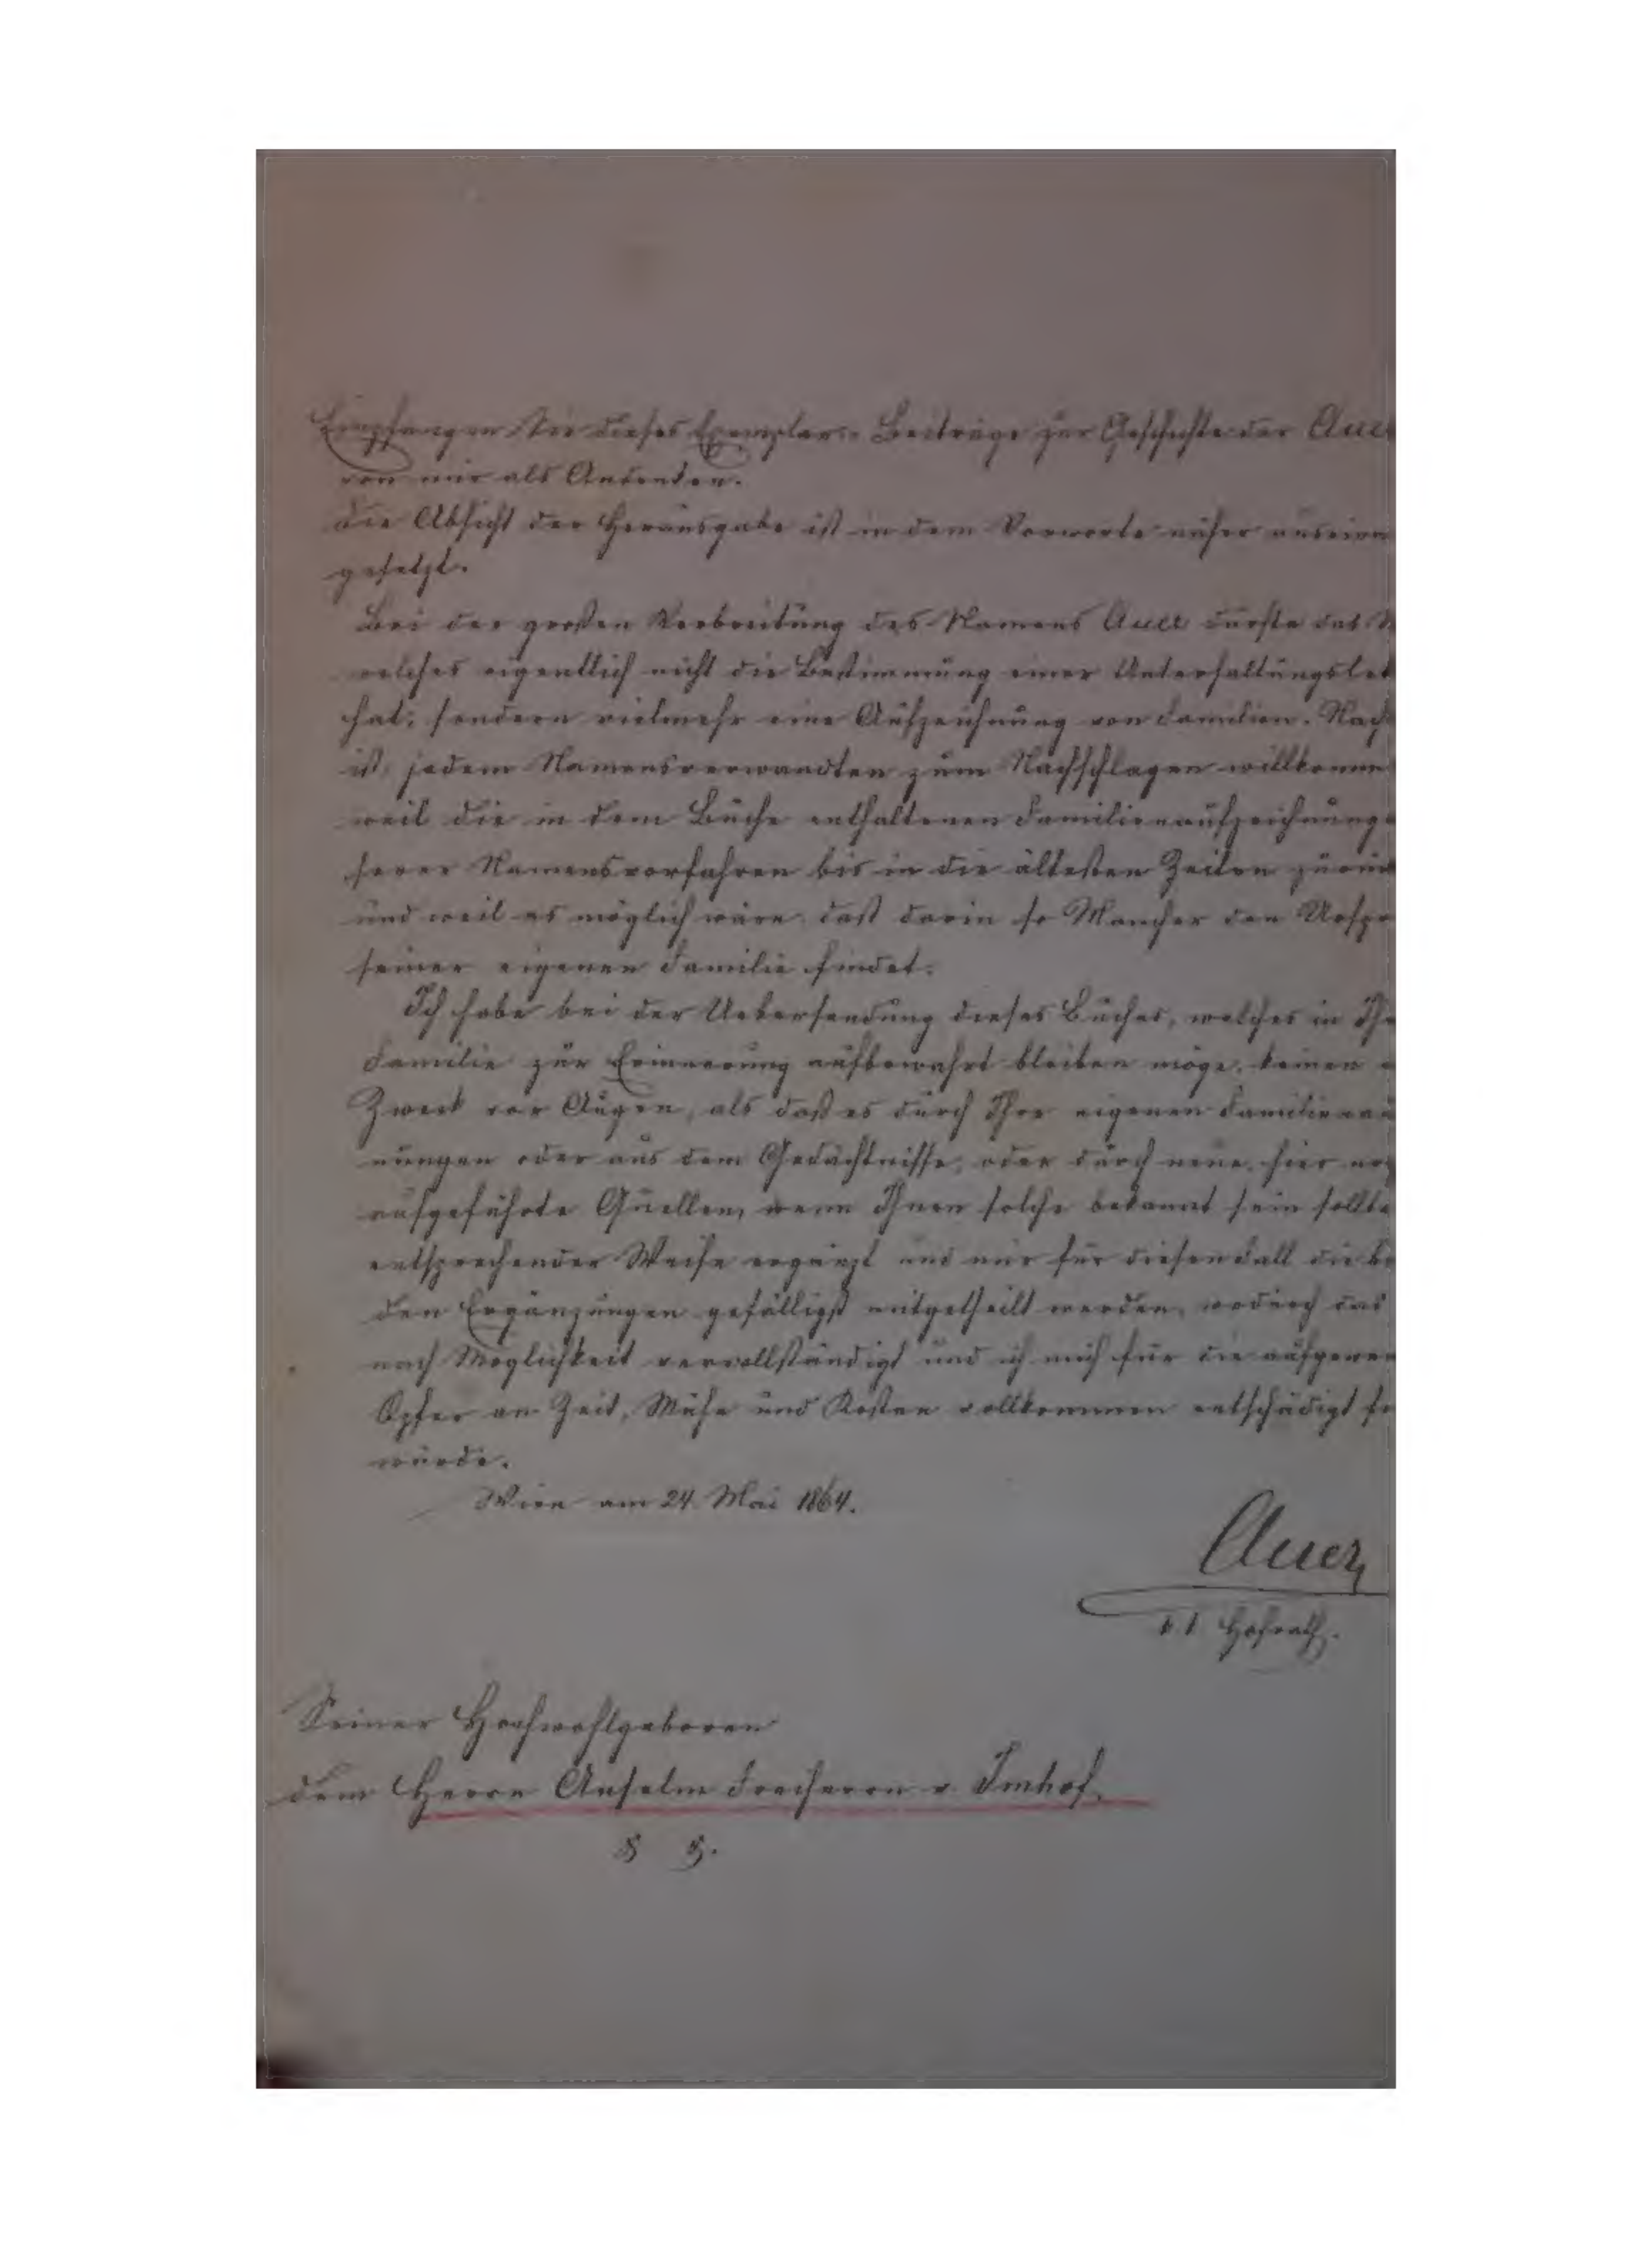 Empfangen Sie dieses Exemplar: Beiträge zur Geschichte der Auer
von mir als Andenken.
Die Absicht der Herausgabe ist in dem Vorworte näher ausein
gesetzt.
Bei der großen Verbreitung des Namens Auer dürfte das
welches eigentlich nicht die Bestimmung einer Unterhaltungslek
hat, sondern vielmehr eine Aufzeichnung von Familien-Nach
ist, jedem Namensverwandten zum Nachschlagen willkomm
weil die in dem Buche enthaltenen Familienaufzeichnung
serer Namensvorfahren bis in die ältesten Zeiten zurück
und weil es möglich wäre, daß darin so Mancher den Urspr
seiner eigenen Familie findet.
Ich habe bei der Uebersendung dieses Buches, welches in Ihr
Familie zur Erinnerung aufbewahrt bleiben möge, keinen
Zweck vor Augen, als daß es durch Ihre eigenen Familienau
nungen oder aus dem Gedächtnisse, oder durch neue, hier
aufgeführte Quellen, wenn Ihnen solche bekannt sein sollte
entsprechender Weise ergänzt und mir für diesen Fall die
den Ergänzungen gefälligst mitgetheilt werden, wodurch das
nach Möglichkeit vervollständigt und ich mich für die aufgewen
Opfer an Zeit, Mühe und Kosten vollkommen entschädigt
würde.
Wien am 24. Mai 1864.
Auer
k. k. Hofrath.
Seiner Hochwohlgeboren
dem Herrn Anselm Freiherrn v. Imhof.